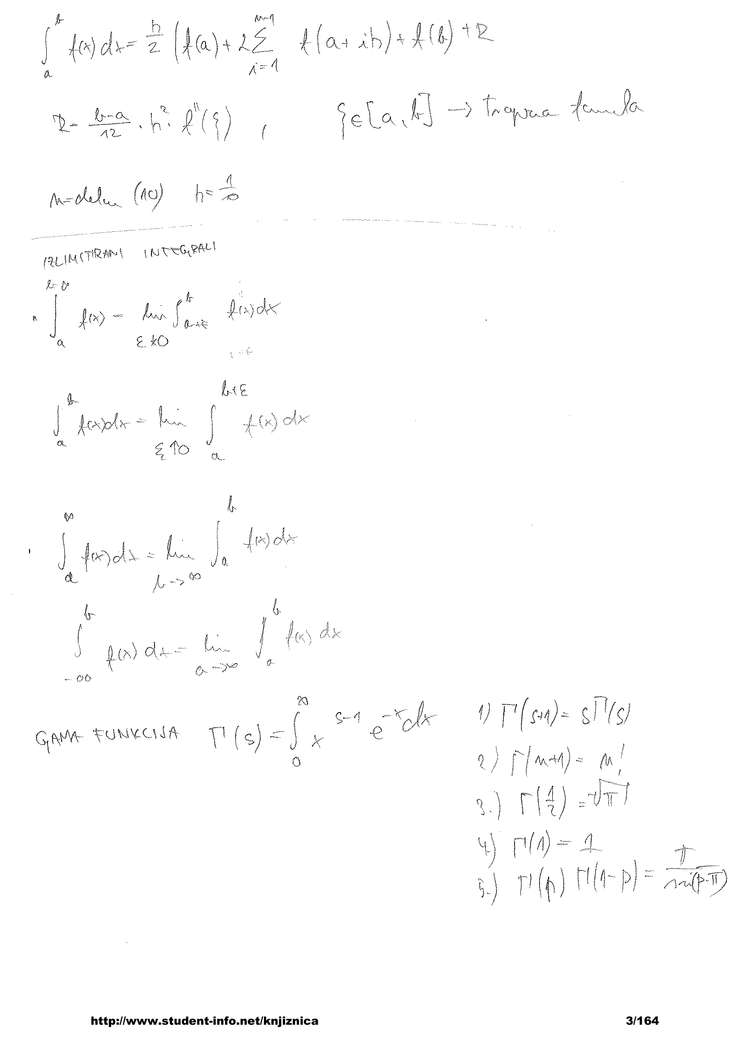 ∫_a^b f(x) dx = h/2 (f(a) + 2 ∑_{i=1}^{n-1} f(a + ih) + f(b) + R
R = (b-a)/12 · h² · f''(ξ) , ξ ∈ [a, b] →
(10) h = 1/10
IZLIMITIRANI INTEGRALI
f(x) = lim_{ε↓0} ∫_{a+ε}^b f(x) dx
∫_a^b f(x) dx = lim_{ε↑0} ∫_a^{b+ε} f(x) dx
∫_a^∞ f(x) dx = lim_{b→∞} ∫_a^b f(x) dx
∫_{-∞}^b f(x) dx = lim_{a→∞} ∫_a^b f(x) dx
GAMA FUNKCIJA Γ(s) = ∫_0^∞ x^{s-1} e^{-x} dx
1) Γ(s+1) = s Γ(s)
2) Γ(n+1) = n!
3.) Γ(1/2) = √π
4) Γ(1) = 1
5.) Γ(p) Γ(1-p) = π / sin(p·π)
http://www.student-info.net/knjiznica 3/164